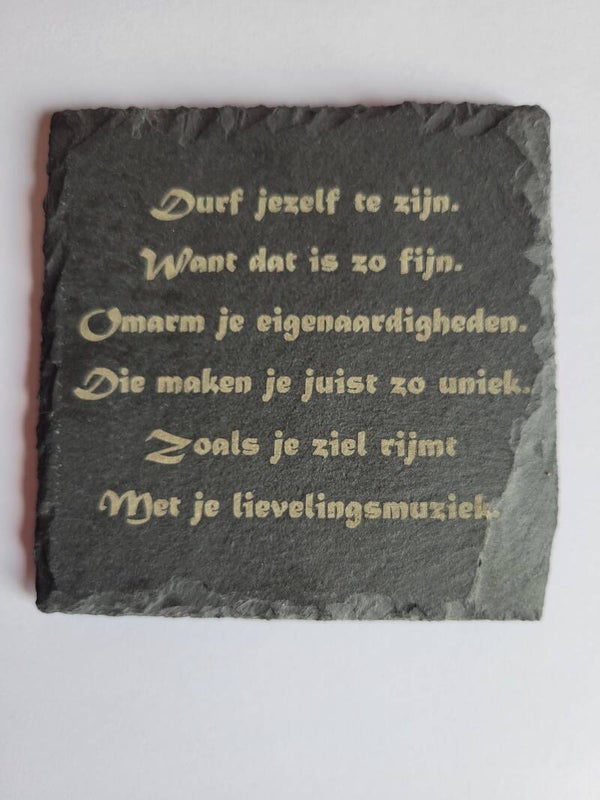 Durf jezelf te zijn.
Want dat is zo fijn.
Omarm je eigenaardigheden.
Die maken je juist zo uniek.
Zoals je ziel rijmt
Met je lievelingsmuziek.